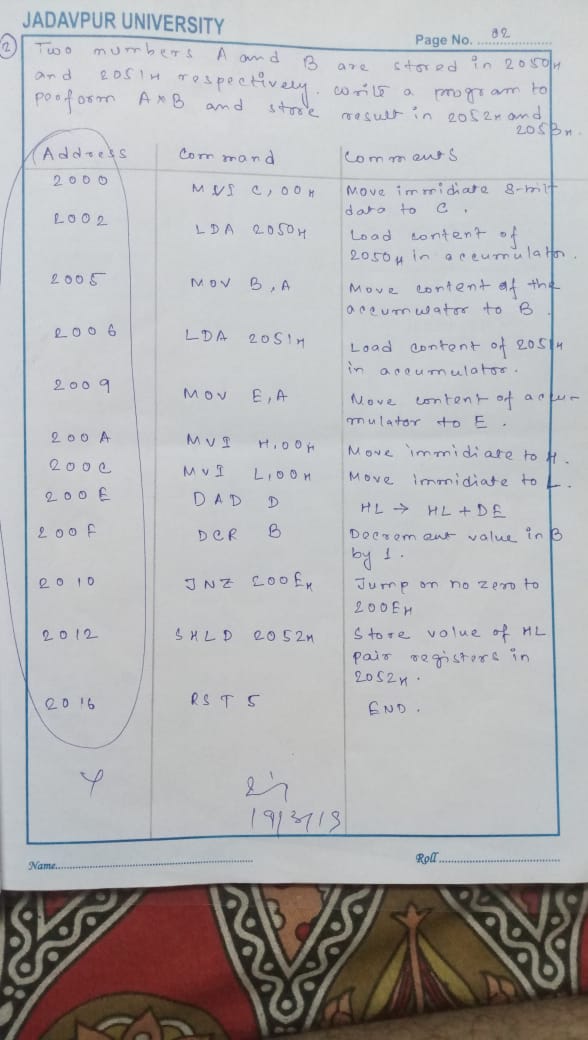 JADAVPUR UNIVERSITY
Page No. 02
2 Two numbers A and B are stored in 2050H
and 2051H respectively. write a program to
perform A*B and store result in 2052H and
2053H.
Address Command Comments
2000 MVI C,00H Move immidiate 8-bit
data to C.
2002 LDA 2050H Load content of
2050H in accumulator.
2005 MOV B,A Move content of the
accumulator to B
2006 LDA 2051H Load content of 2051H
in accumulator.
2009 MOV E,A Move content of accu-
mulator to E.
200A MVI H,00H Move immidiate to H.
200C MVI L,00H Move immidiate to L.
200E DAD D HL → HL + DE
200F DCR B Decrement value in B
by 1.
2010 JNZ 200EH Jump on no zero to
200EH
2012 SHLD 2052H Store value of HL
pair registers in
2052H.
2016 RST 5 END.
Name
Roll